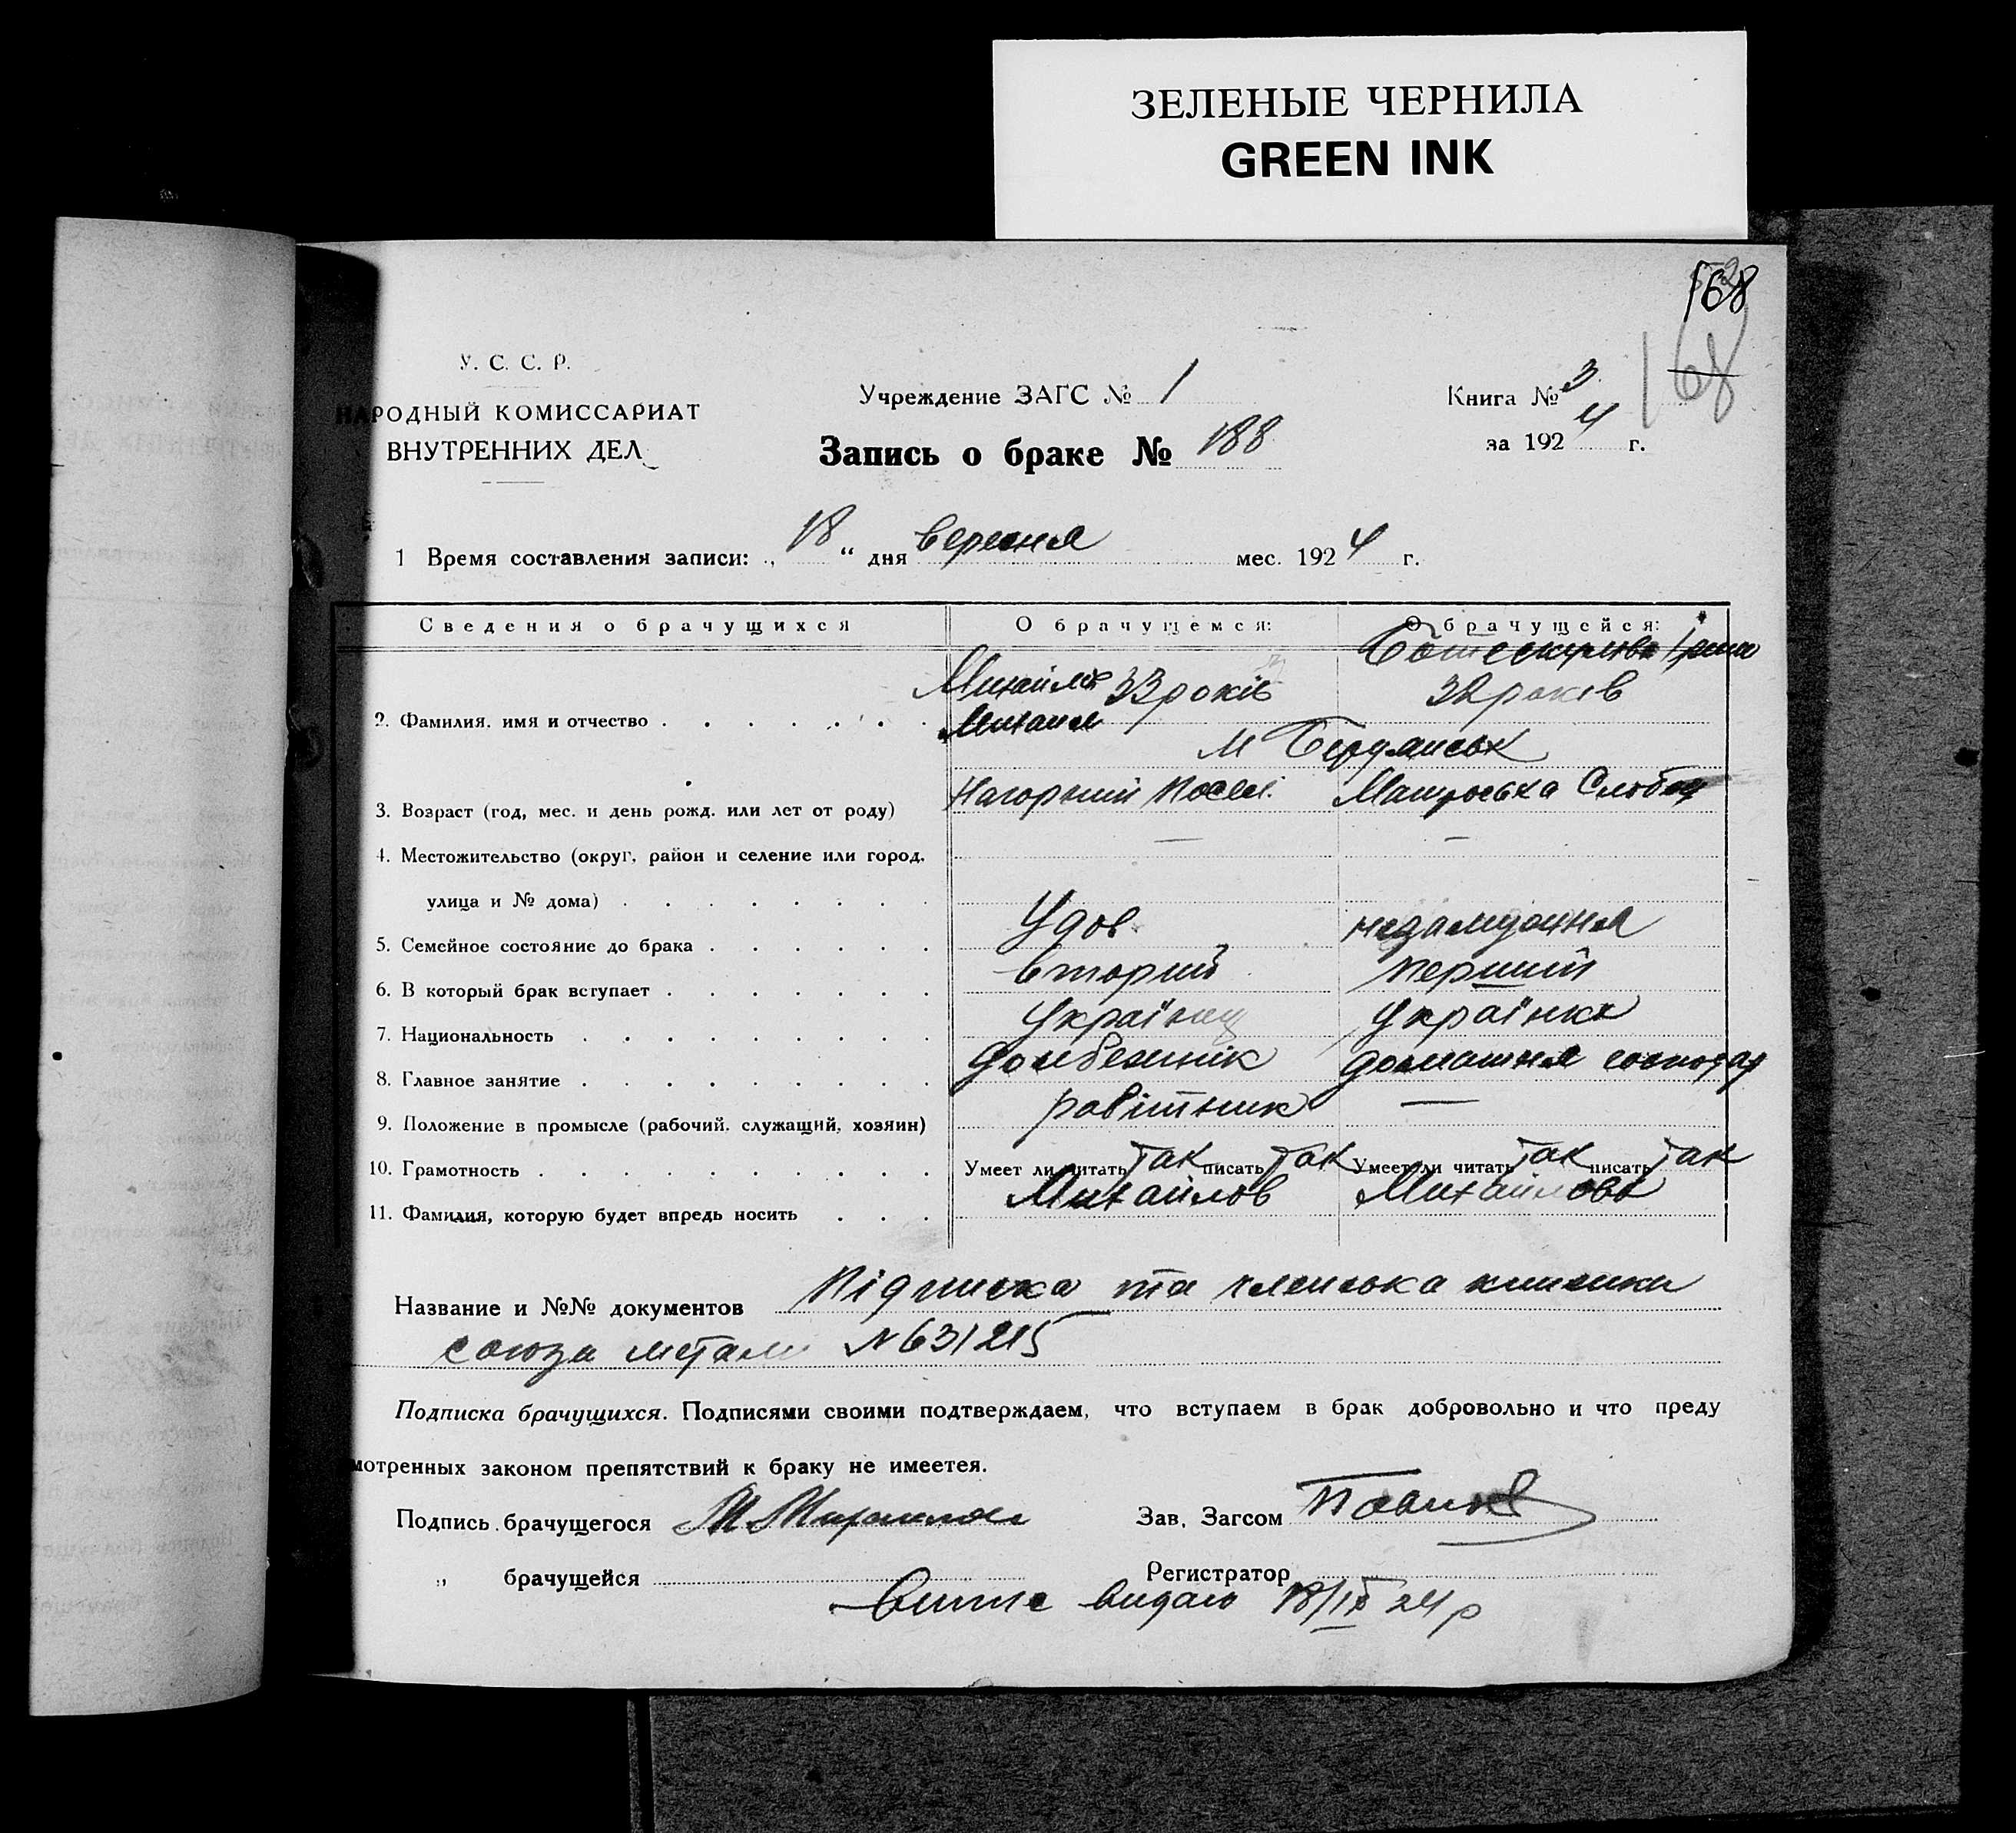 ЗЕЛЕНЫЕ ЧЕРНИЛА
GREEN INK
168
168
У. С. С. Р.
НАРОДНЫЙ КОМИССАРИАТ
ВНУТРЕННИХ ДЕЛ
Учреждение ЗАГС № 1
Запись о браке № 188
Книга № 3
за 1924 г.
1 Время составления записи: „ 18 “ дня вересня мес. 1924 г.
Сведения о брачущихся О брачущемся: О брачущейся:
Михайлов 33 років 32 років
2. Фамилия, имя и отчество Михаил
м Бердянськ
3. Возраст (год, мес. и день рожд. или лет от роду) Нагорний Посел. Матроська Слобод
4. Местожительство (округ, район и селение или город, — —
улица и № дома)
5. Семейное состояние до брака Удов. незамужня
6. В который брак вступает вторий перший
7. Национальность Українец Українка
8. Главное занятие домашня господар
9. Положение в промысле (рабочий, служащий, хозяин) робітник —
10. Грамотность Умеет ли читать так писать так Умеет ли читать так писать так
11. Фамилия, которую будет впредь носить Михайлов Михайлова
Название и №№ документов Підписка та членська книжка
союза метал. № 631215
Подписка брачущихся. Подписями своими подтверждаем, что вступаем в брак добровольно и что преду
мотренных законом препятствий к браку не имеется.
Подпись брачущегося М. Михайлов Зав. Загсом
„ брачущейся Регистратор
видано 18/IX 24 р